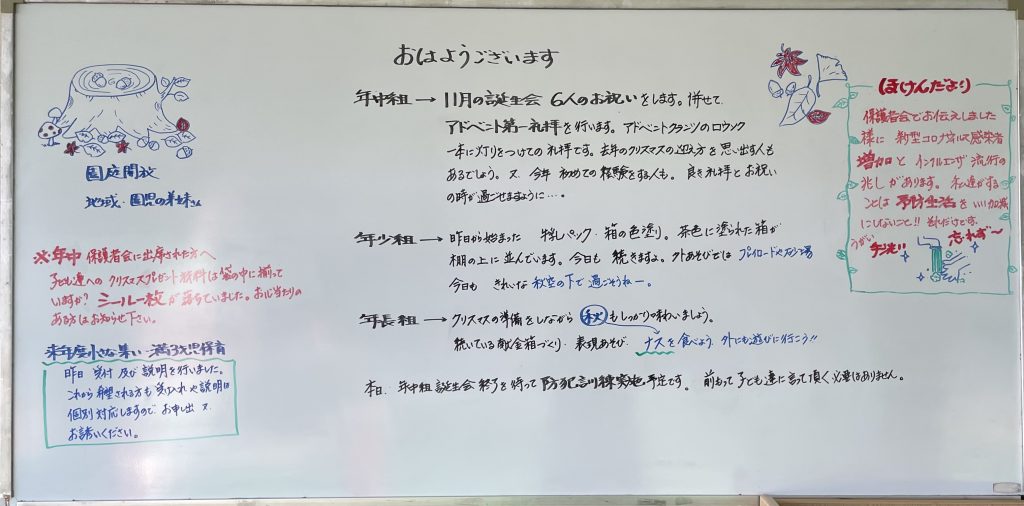 おはようございます
園庭開放
地域・園児の弟妹さん
※年中 保護者会に出席された方へ
子ども達へのクリスマスプレゼント 材料は袋の中に揃って
いますか? シール一枚が落ちていました。お心当たりの
ある方はお知らせ下さい。
来年度小さな集い・満3才児保育
昨日 受付及び説明を行いました。
これから希望される方も受け入れや説明は
個別対応しますので お申し出 又
お誘いください。
年中組→ 11月の誕生会 6人のお祝いをします。併せて
アドベント第一礼拝を行います。アドベントクランツのロウソク
一本に灯りをつけての礼拝です。去年のクリスマスの迎え方を思い出す人も
あるでしょう。又 今年 初めての経験をする人も。良き礼拝とお祝い
の時が過ごせますように…。
年少組→ 昨日から始まった 牛乳パック・箱の色塗り。茶色に塗られた箱が
棚の上に並んでいます。今日も続きますよ。外あそびでは
今日も きれいな秋空の下で過ごそうねー。
年長組→ クリスマスの準備をしながら 秋 もしっかり味わいましょう。
続いている献金箱づくり・表現あそび・ナスを食べよう 外にも遊びに行こう!!
本日、年中組誕生会終了を待って防犯訓練実施予定です。前もって子ども達に言って頂く必要はありません。
ほけんだより
保護者会でお伝えしました
様に 新型コロナ 感染者
増加と インフルエンザ流行の
兆しがあります。私達がする
ことは予防生活をいい加減
にしないこと!! それだけです。
うがい 手洗い 忘れず〜